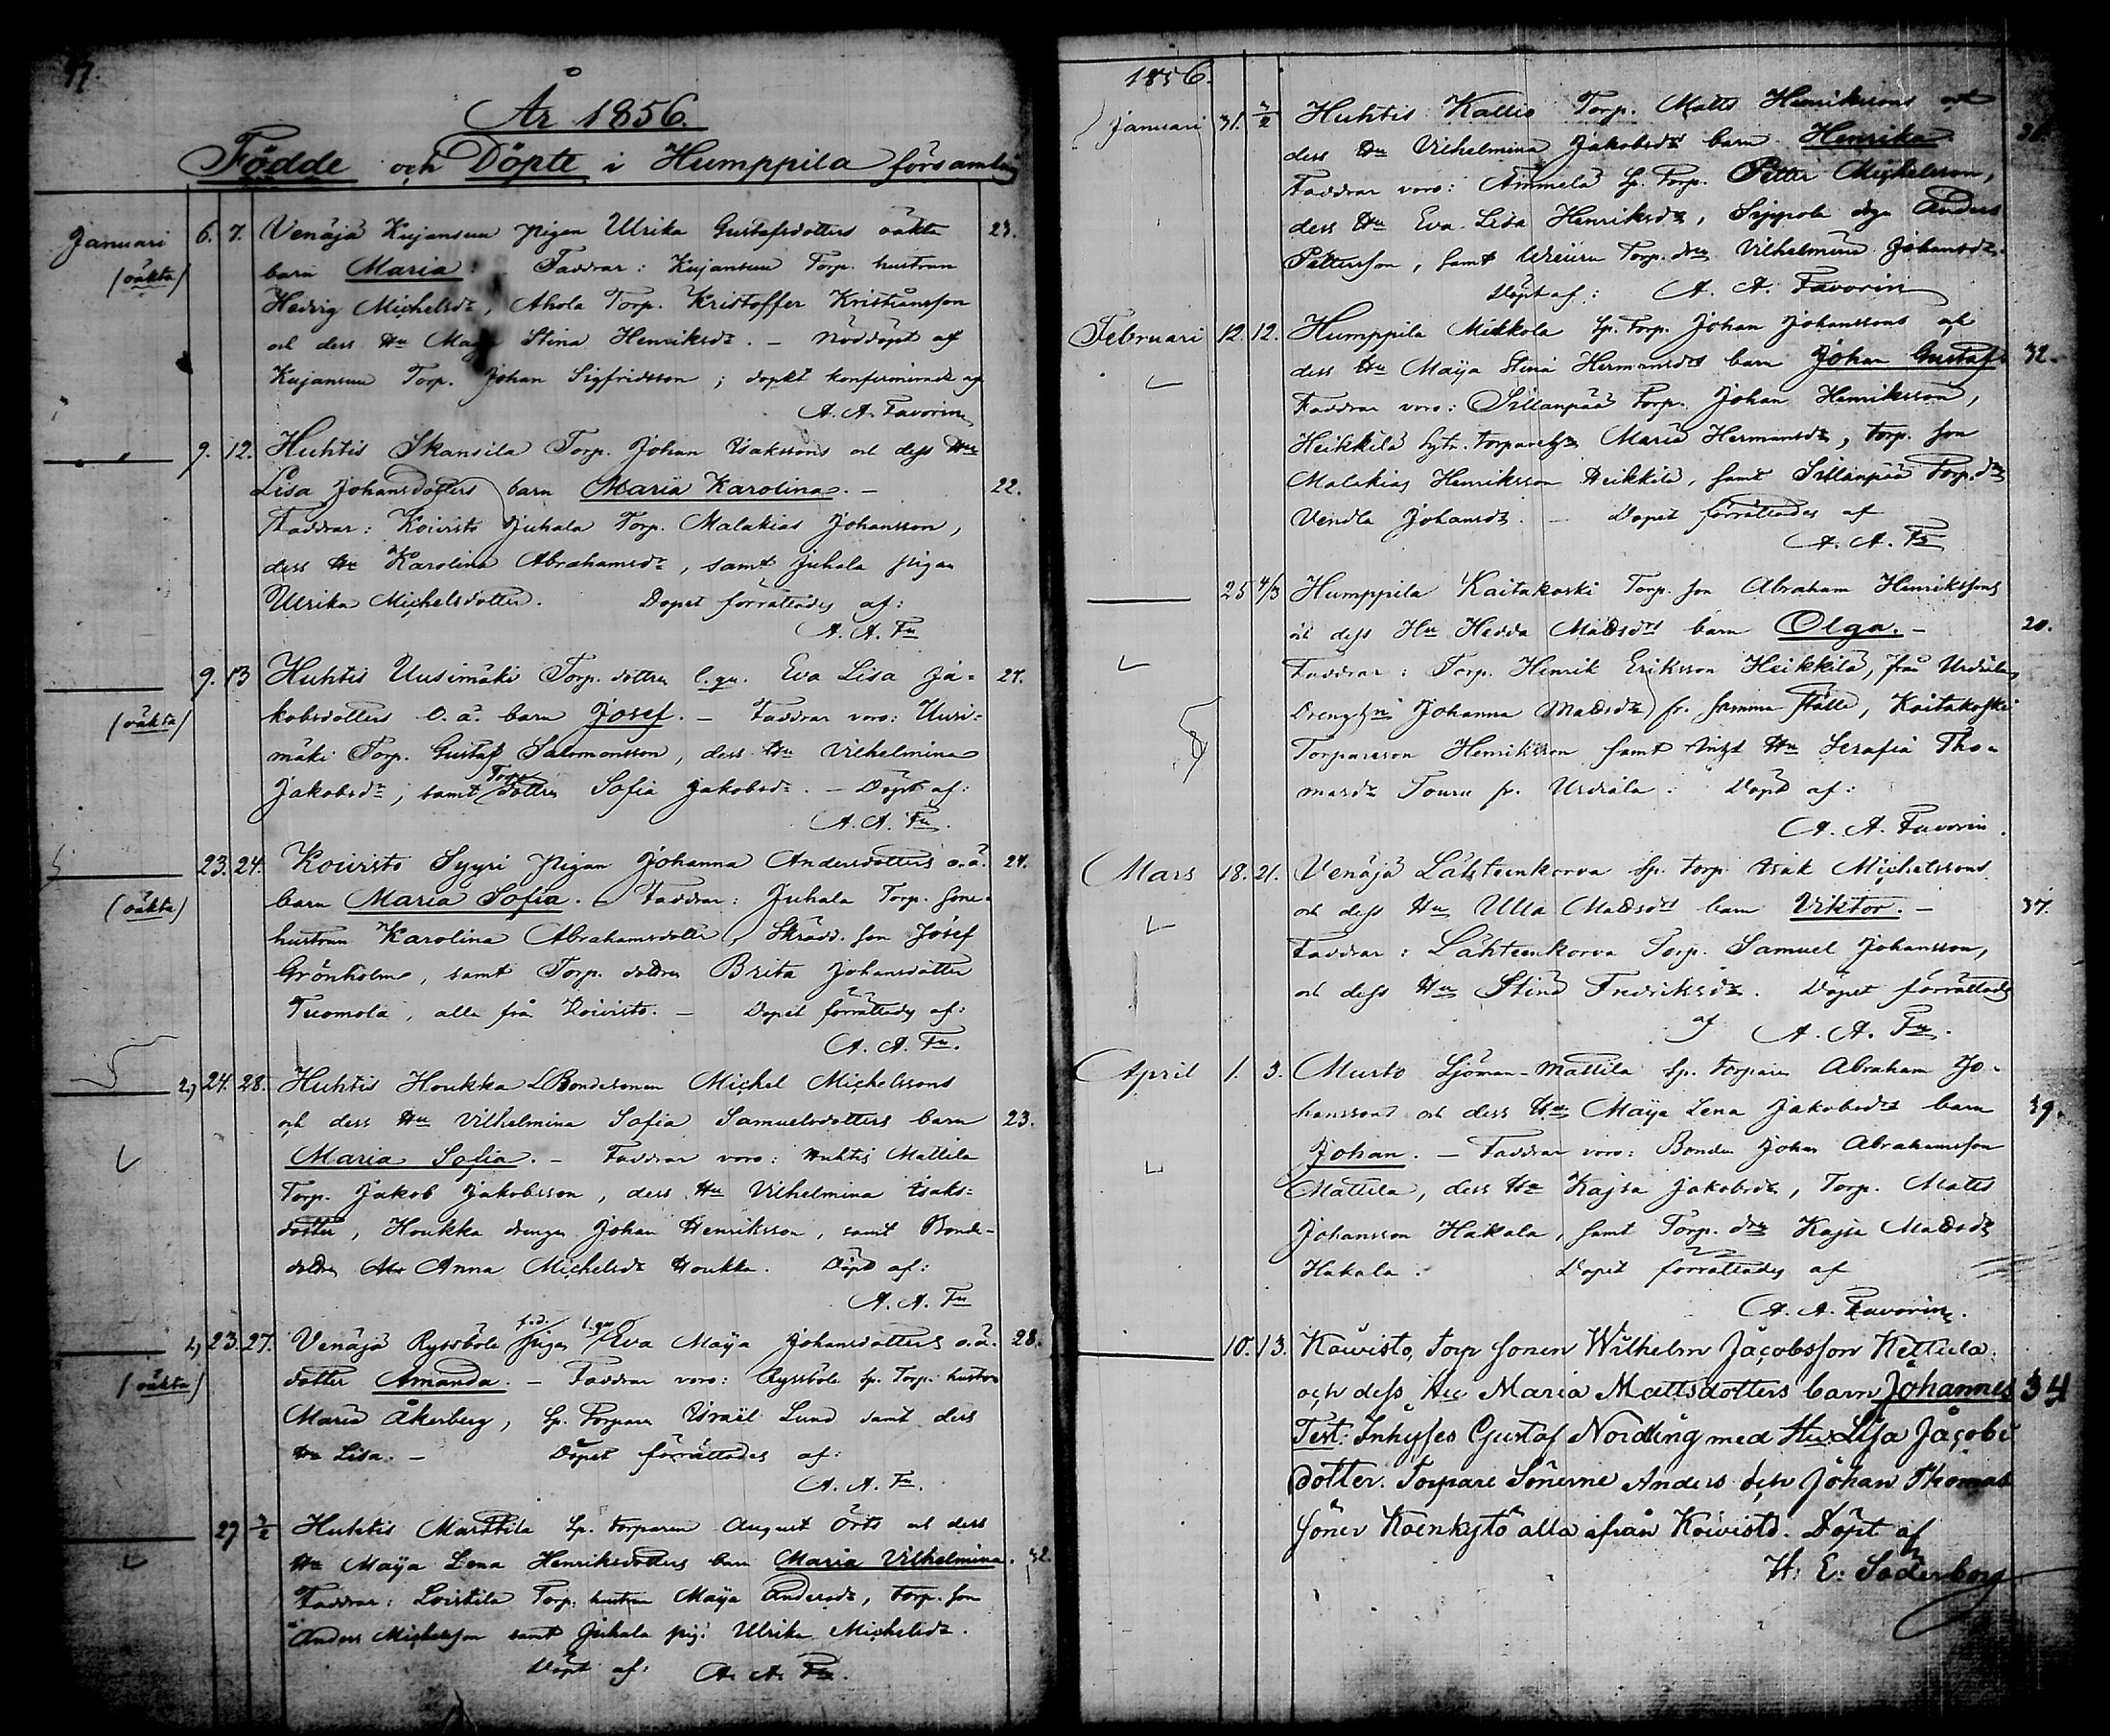 47.
År 1856.
Födde och Döpte i Humppila församling
Januari 6. 7. Venäjä Kujansuu pigan Ulrika Gustafsdotters oäkta 23.
(oäkta) barn Maria: Faddrar: Kujansuu Torp. hustrun
Hedvig Michelsdr, Ahola Torp. Kristoffer Kristiansson
och dess Hu Maja Stina Henriksdr. – Nöddöpt af
Kujansuu Torp. Johan Sigfridsson; dopet konfirmerade af
A. A. Favorin
9. 12. Huhtis Skansila Torp. Johan Isakssons och dess Hu
Lisa Johansdotters barn Maria Karolina. – 22.
Faddrar: Koivisto Juhala Torp. Malakias Johansson,
dess Hu Karolina Abrahamsdr, samt Juhala pigan
Ulrika Michelsdotter. Dopet förrättades af:
A. A. Fn
9. 13 Huhtis Uusimäki Torp. dottren l. qv. Eva Lisa Ja= 27.
(oäkta) kobsdotters o. ä. barn Josef. – Faddrar voro: Uusi=
mäki Torp. Gustaf Salomonsson, dess Hu Vilhelmina
Jakobsdr, samt Torp. dottren Sofia Jakobsdr. – Döpt af:
A. A. Fn.
23. 24. Koivisto Syyri pigan Johanna Andersdotters o. ä. 24.
(oäkta) barn Maria Sofia. Faddrar: Juhala Torp. sone-
hustrun Karolina Abrahamsdotter, Skrädd. son Josef
Grönholm, samt Torp. dottren Brita Johansdotter
Tuomola, alla från Koivisto. – Dopet förrättades af:
A. A. Fn.
2) 24. 28. Huhtis Houkka Bondesonen Michel Michelssons
och dess Hu Vilhelmina Sofia Samuelsdotters barn 23.
Maria Sofia. – Faddrar voro: Huhtis Mattila
Torp. Jakob Jakobsson, dess Hu Vilhelmina Isaks=
dotter, Houkka drengen Johan Henriksson, samt Bonde-
dottren Anna Michelsdr Houkka. Döpt af:
A. A. Fn
1) 23. 27. Venäjä Ryssböle f.d. pigan l. qv. Eva Maja Johansdotters o. ä. 28.
(oäkta) dotter Amanda. – Faddrar voro: Ryssböle Sp. Torp. hustru
Maria Åkerberg, Sp. Torparen Israël Lund samt dess
Hu Lisa. – Dopet förrättades af:
A. A. Fn.
29 3/2 Huhtis Marttila Sp. torparen August Örts och dess
Hu Maja Lena Henriksdotters barn Maria Vilhelmina. 32.
Faddrar: Loistila Torp. hustrun Maja Andersdr, torp. son
Anders Michelsson samt Juhala pig. Ulrika Michelsdr.
Döpt af: A. A. Fn.
1856.
Januari 31. 3/2 Huhtis Kallio Torp. Matts Henrikssons och
dess Hu Vilhelmina Jakobsdrs barn Henrika
Faddrar voro: Ammela Sp. Torp. Petter Michelsson,
dess Hu Eva Lisa Henriksdr, Seppola dgn Anders
Pettersson, samt Torp. drn Vilhelmina Johansdr.
Döpt af: A. A. Favorin
Februari 12. 12. Humppila Mikkola Sp. Torp. Johan Johanssons och
dess Hu Maja Stina Hermansdrs barn Johan Gustaf. 32.
Faddrar voro: Sillanpää Torp. Johan Henriksson,
Heikkilä Maria Hermansdr, torp. son
Malakias Henriksson Heikkilä, samt Sillanpää Torp. drn
Vendla Johansdr. – Dopet förrättades af
A. A. Fn
25 4/3 Humppila Kaitakoski Torp. son Abraham Henrikssons
och dess Hu Hedda Mattsdrs barn Olga. – 20.
Faddrar: Torp. Henrik Eriksson Heikkilä, från Urdiala,
Johanna Mattsdr fr. samma ställe, Kaitakoski
Torpareson Henriksson samt Hu Serafia Tho=
masdr Touru fr. Urdiala. Döpt af:
A. A. Favorin.
Mars 18. 21. Venäjä Lähteenkorva Sp. torp. Isak Michelssons
och dess Hu Ulla Mattsdrs barn Viktor. – 37.
Faddrar: Lähteenkorva Torp. Samuel Johansson,
och dess Hu Stina Fredriksdr. Dopet förrättades
af A. A. Fn.
April 1. 3. Murto Sjöman-Mattila Sp. torparen Abraham Jo-
hanssons och dess Hu Maja Lena Jakobsdrs barn 39.
Johan. – Faddrar voro: Bonden Johan Abrahamsson
Mattila, dess Hu Kajsa Jakobsdr, Torp. Matts
Johansson Hakala, samt Torp. drn Kajsa Mattsdr
Hakala. Dopet förrättades af
A. A. Favorin.
10. 13. Koivisto, Torp sonen Wilhelm Jacobsson Kettula.
och dess Hu Maria Mattsdotters barn Johannes 34
Test: Inhyses Gustaf Nordling med Hu Lisa Jacobs
dotter. Torpare Sönerne Anders och Johan Thomas
söner Koenkytö alla ifrån Koivisto. Döpt af
H. E. Söderborg